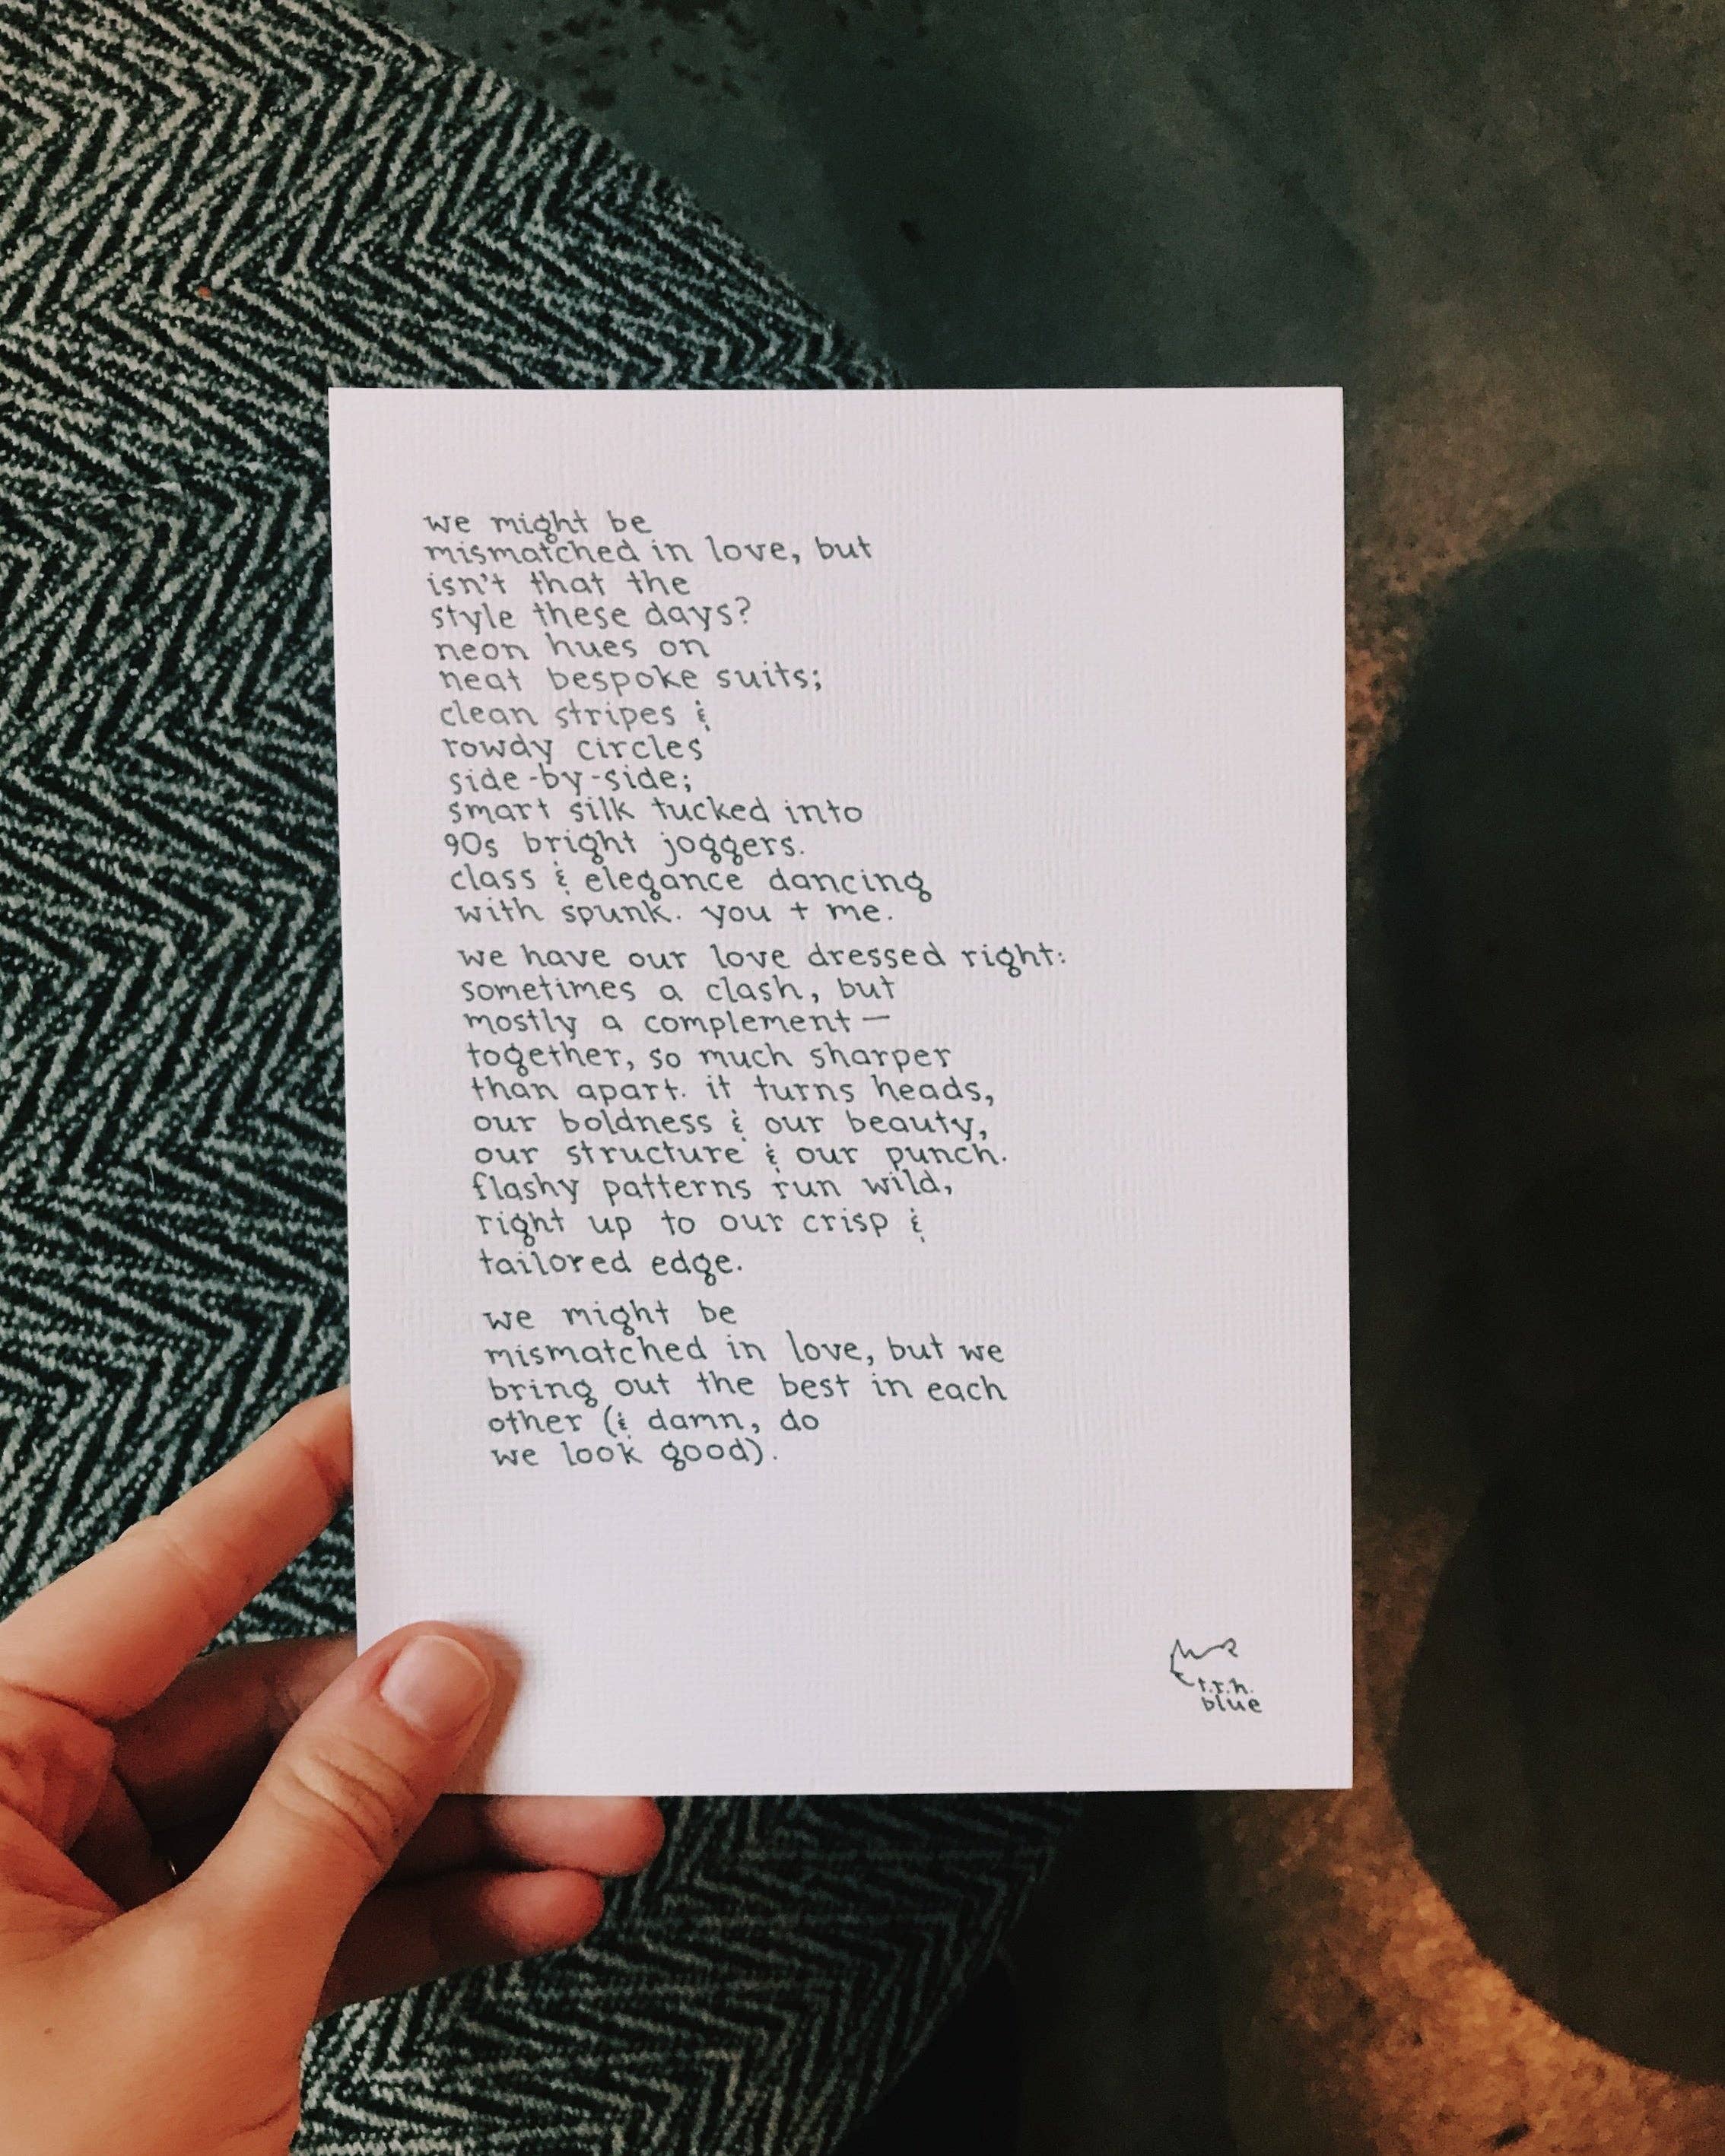 we might be
mismatched in love, but
isn't that the
style these days?
neon hues on
neat bespoke suits;
clean stripes &
rowdy circles
side-by-side;
smart silk tucked into
90s bright joggers.
class & elegance dancing
with spunk. you + me.
we have our love dressed right:
sometimes a clash, but
mostly a complement —
together, so much sharper
than apart. it turns heads,
our boldness & our beauty,
our structure & our punch.
flashy patterns run wild,
right up to our crisp &
tailored edge.
we might be
mismatched in love, but we
bring out the best in each
other (& damn, do
we look good).
t.r.h.
blue